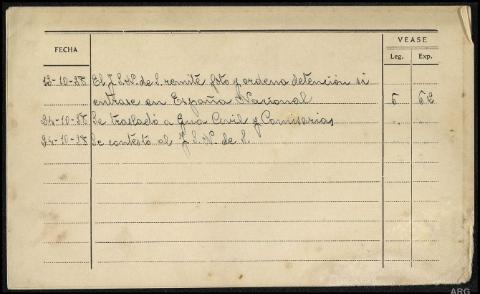 VEASE
FECHA
Leg. Exp.
23-10-38 El J. S. N. de S. remite foto y ordena detención si
entrase en España Nacional 5 52
24-10-38 Se trasladó a Gua Civil y Comisarias
24-10-38 Se contestó al J. S. N. de S.
ARG